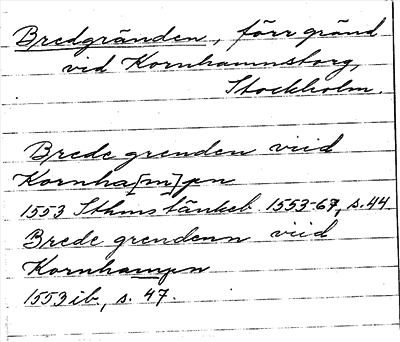 Bredgränden, förr gränd
vid Kornhamnstorg,
Stockholm.
Brede grenden viid
Kornha[m]pn
1553 Sthms tänkeb. 1553-67, s. 44
Brede grendenn viid
Kornhampn
1553 ib., s. 47.